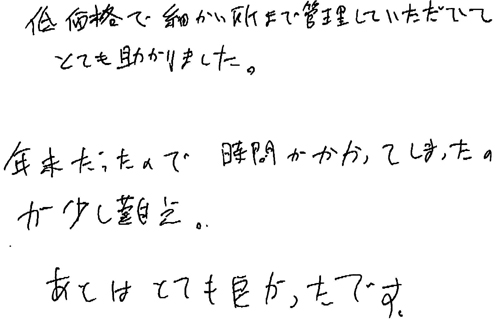 低価格で細かい所まで管理していただいて
とても助かりました。
年末だったので時間がかかってしまったの
が少し難点。
あとはとても良かったです。